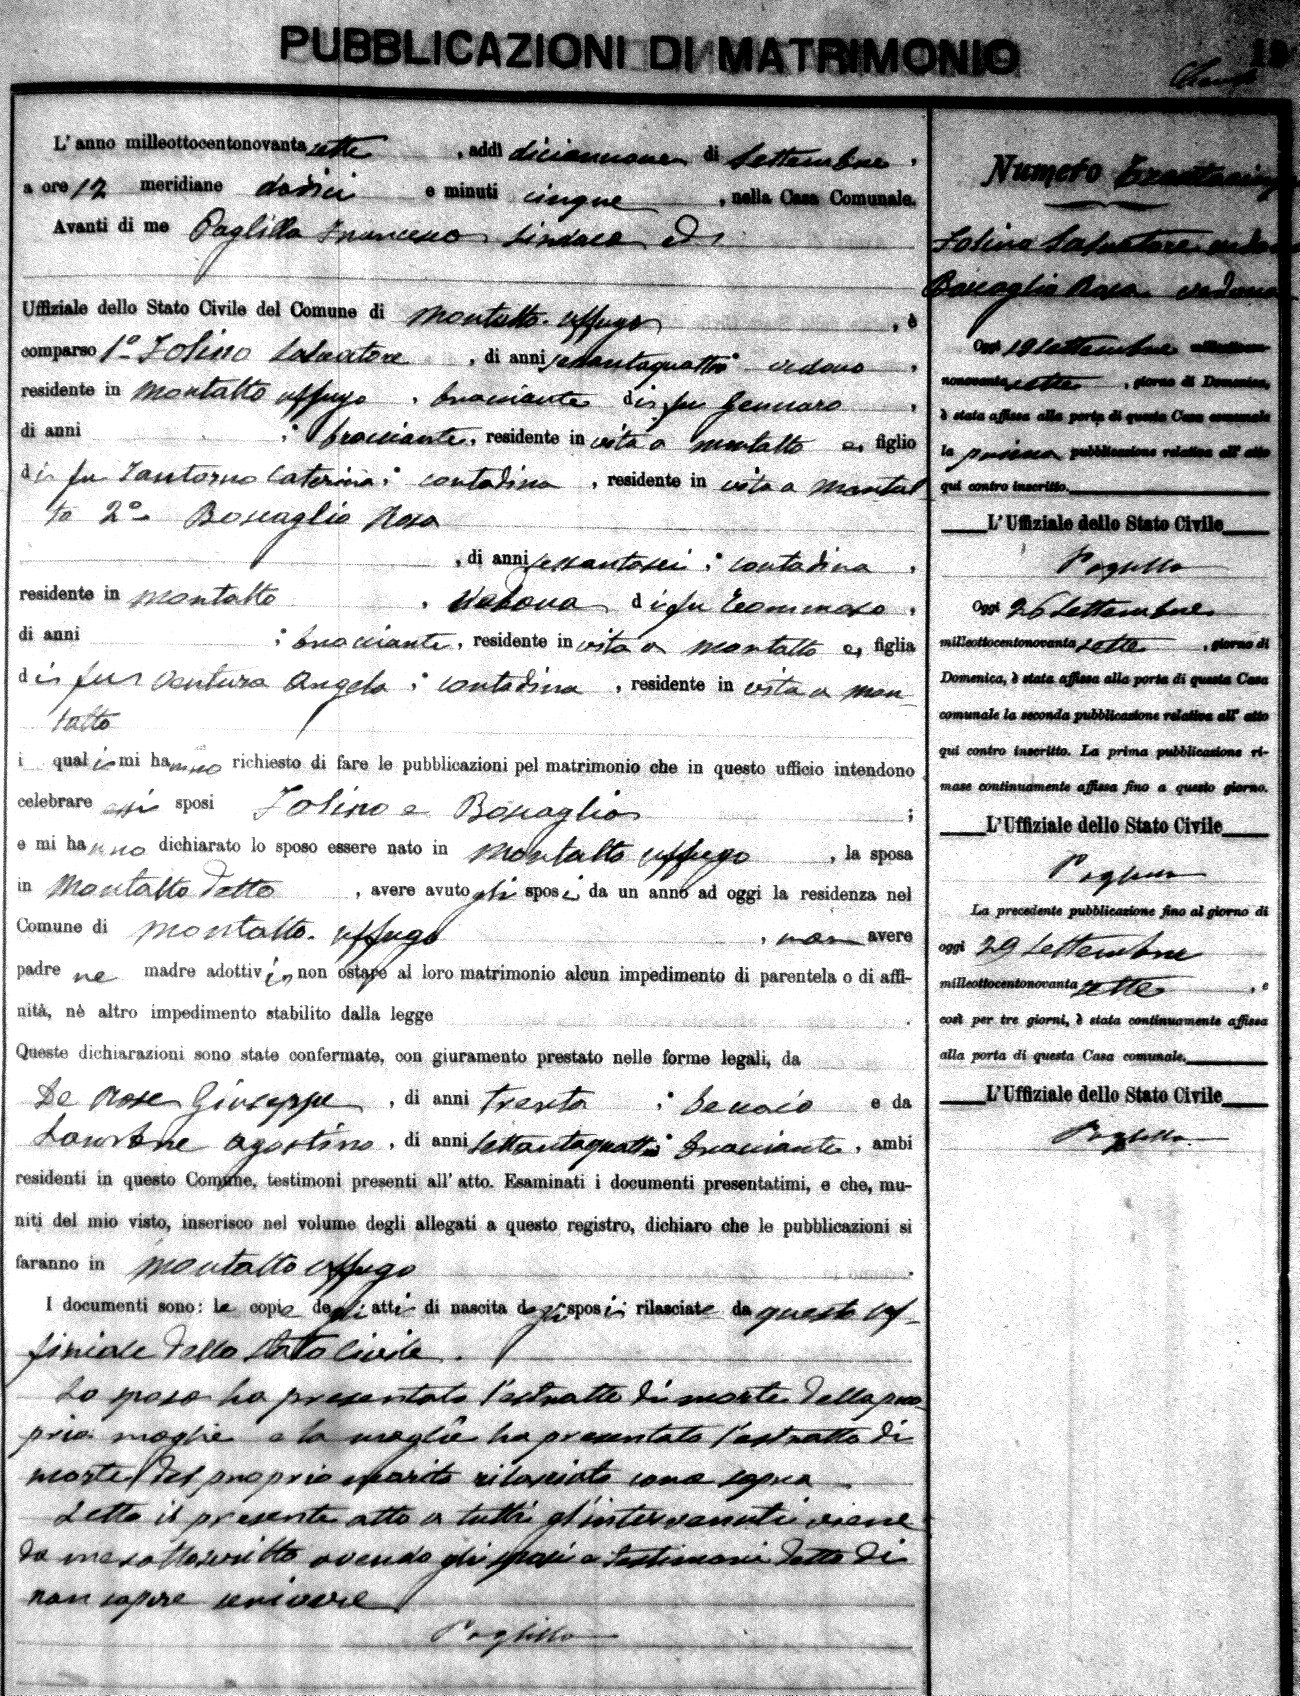 PUBBLICAZIONI DI MATRIMONIO
L' anno milleottocentonovanta sette, addì diciannove di Settembre,
a ore 12 meridiane dodici e minuti cinque, nella Casa Comunale.
Avanti di me Paglilla Francesco Sindaco
Uffiziale dello Stato Civile del Comune di Montalto Uffugo, è
comparso 1º Iolino Salvatore, di anni sessantaquattro vedovo,
residente in Montalto Uffugo, bracciante di fu Gennaro,
di anni ; bracciante, residente in vita a Montalto e, figlio
di fu Santorno Caterina; contadina, residente in vita a Montal
to 2º Boscaglia Rosa
, di anni sessantasei; contadina,
residente in Montalto, Vedova di fu Tommaso,
di anni ; bracciante, residente in vita a Montalto e, figlia
di fu Ventura Angela; contadina, residente in vita a Mon-
talto
i quali mi hanno richiesto di fare le pubblicazioni pel matrimonio che in questo ufficio intendono
celebrare essi sposi Iolino e Boscaglia;
e mi hanno dichiarato lo sposo essere nato in Montalto Uffugo, la sposa
in Montalto detto, avere avuto gli sposi da un anno ad oggi la residenza nel
Comune di Montalto Uffugo, non avere
padre ne madre adottivi, non ostare al loro matrimonio alcun impedimento di parentela o di affi-
nità, nè altro impedimento stabilito dalla legge.
Queste dichiarazioni sono state confermate, con giuramento prestato nelle forme legali, da
De Rose Giuseppe, di anni trenta; e da
Agostino, di anni settantaquattro; bracciante, ambi
residenti in questo Comune, testimoni presenti all' atto. Esaminati i documenti presentatimi, e che, mu-
niti del mio visto, inserisco nel volume degli allegati a questo registro, dichiaro che le pubblicazioni si
faranno in Montalto Uffugo.
I documenti sono: le copie degli atti di nascita degli sposi rilasciate da questo Uf-
ficiale dello Stato Civile.
Lo sposo ha presentato l'estratto di morte della pro-
pria moglie e la moglie ha presentato l'estratto di
morte del proprio marito rilasciato come sopra
Letto il presente atto a tutti gl'intervenuti viene
da me sottoscritto avendo gli sposi e testimoni detto di
non sapere scrivere
Paglilla
Numero Trentacinque
Iolino Salvatore vedovo
Boscaglia Rosa vedova
Oggi 19 settembre milleottocento-
novanta sette, giorno di Domenica,
è stata affissa alla porta di questa Casa comunale
la prima pubblicazione relativa all' atto
qui contro inscritto.
L'Uffiziale dello Stato Civile
Paglilla
Oggi 26 Settembre
milleottocentonovanta sette, giorno di
Domenica, è stata affissa alla porta di questa Casa
comunale la seconda pubblicazione relativa all' atto
qui contro inscritto. La prima pubblicazione ri-
mase continuamente affissa fino a questo giorno.
L'Uffiziale dello Stato Civile
Paglilla
La precedente pubblicazione fino al giorno di
oggi 29 Settembre
milleottocentonovanta sette, e
così per tre giorni, è stata continuamente affissa
alla porta di questa Casa comunale.
L'Uffiziale dello Stato Civile
Paglilla